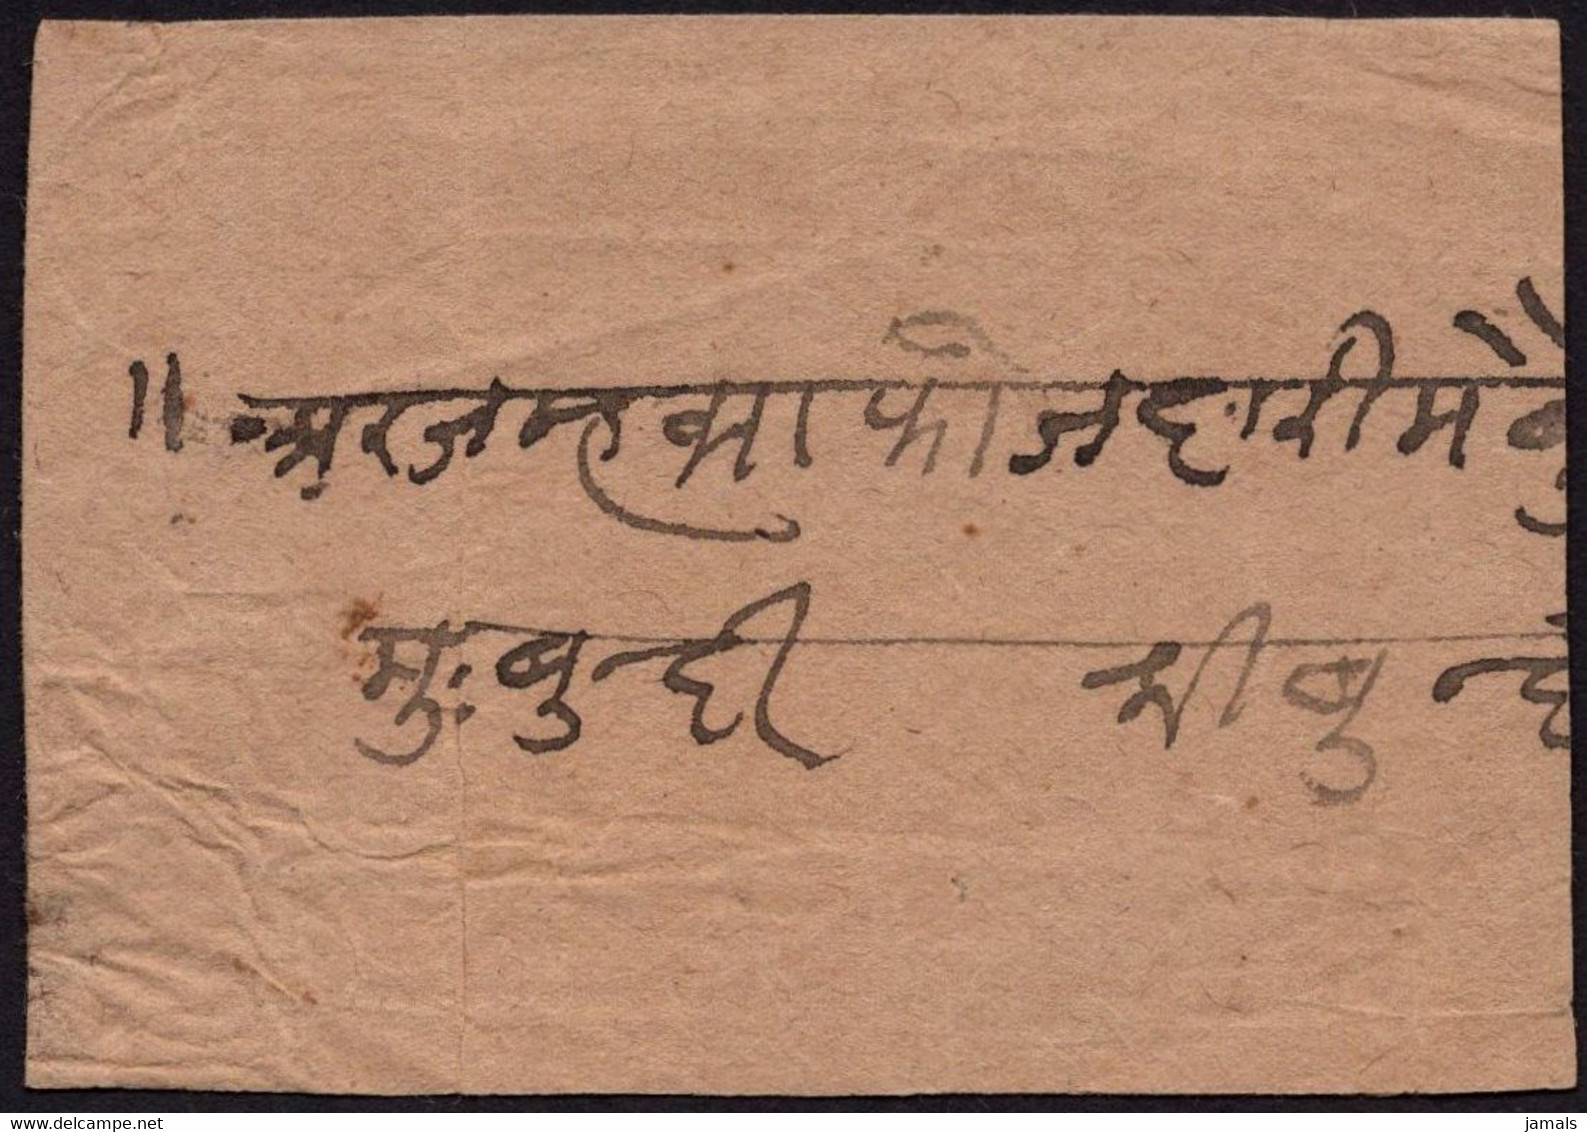 ॥ अरज महकमा फौजदारी मै
मुः बुन्दी श्री बुन्दी
www.delcampe.net
jamals